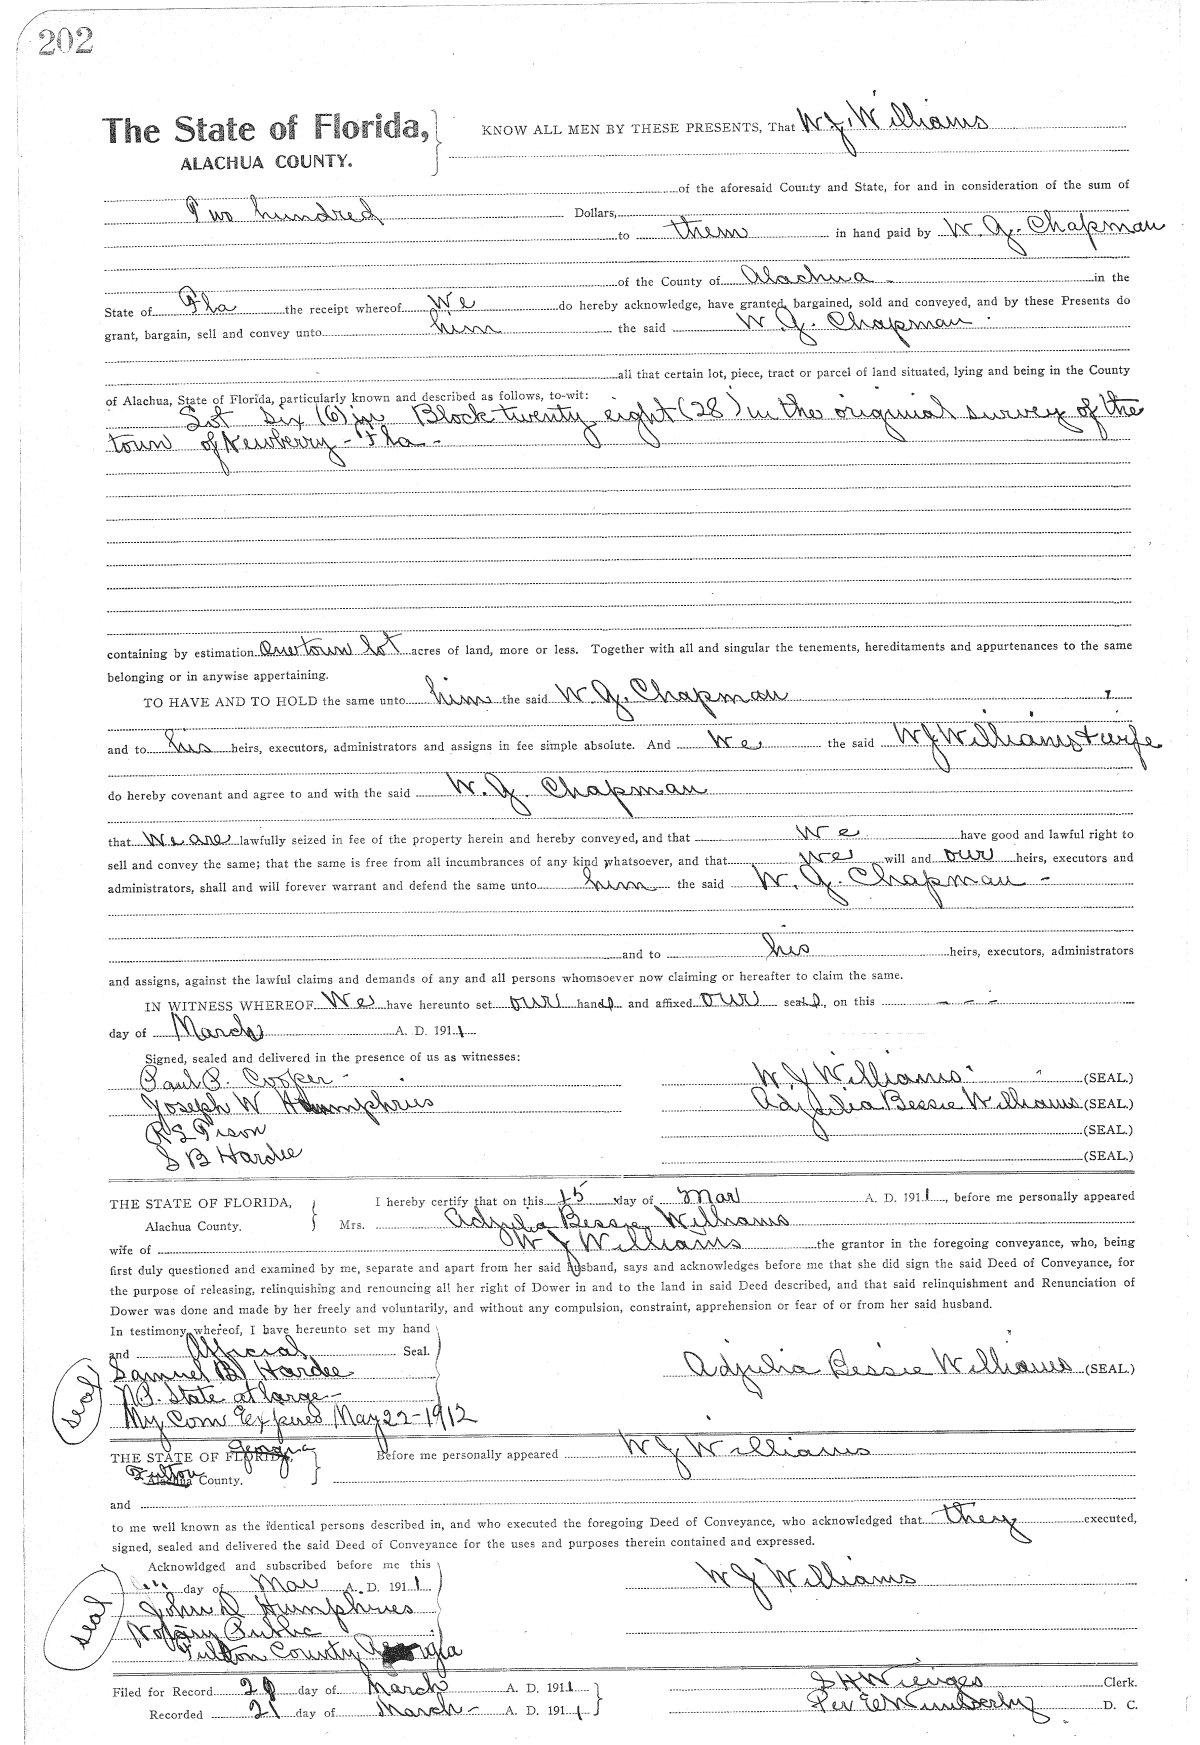 202
The State of Florida, KNOW ALL MEN BY THESE PRESENTS, That W J. Williams
ALACHUA COUNTY.
of the aforesaid County and State, for and in consideration of the sum of
Two hundred Dollars,
to them in hand paid by W. G. Chapman
of the County of Alachua in the
State of Fla the receipt whereof We do hereby acknowledge, have granted, bargained, sold and conveyed, and by these Presents do
grant, bargain, sell and convey unto him the said W. G. Chapman
all that certain lot, piece, tract or parcel of land situated, lying and being in the County
of Alachua, State of Florida, particularly known and described as follows, to-wit:
Lot Six (6) in Block twenty eight (28) in the originial survey of the
town of Newberry - Fla -
containing by estimation One town lot acres of land, more or less. Together with all and singular the tenements, hereditaments and appurtenances to the same
belonging or in anywise appertaining.
TO HAVE AND TO HOLD the same unto him the said W. G. Chapman
and to his heirs, executors, administrators and assigns in fee simple absolute. And We the said W J Williams + wife
do hereby covenant and agree to and with the said W. G. Chapman
that We are lawfully seized in fee of the property herein and hereby conveyed, and that We have good and lawful right to
sell and convey the same; that the same is free from all incumbrances of any kind whatsoever, and that We will and our heirs, executors and
administrators, shall and will forever warrant and defend the same unto him the said W. G. Chapman -
and to his heirs, executors, administrators
and assigns, against the lawful claims and demands of any and all persons whomsoever now claiming or hereafter to claim the same.
IN WITNESS WHEREOF We have hereunto set our hands and affixed our seals, on this - - -
day of March A. D. 1911
Signed, sealed and delivered in the presence of us as witnesses:
Paul P. Cooper - W. J Williams (SEAL.)
Joseph W Humphries Adjulia Bessie Williams (SEAL.)
R L Pison (SEAL.)
S B Hardee (SEAL.)
THE STATE OF FLORIDA, I hereby certify that on this 15 day of Mar A. D. 1911, before me personally appeared
Alachua County. Mrs. Adjulia Bessie Williams
wife of W J Williams the grantor in the foregoing conveyance, who, being
first duly questioned and examined by me, separate and apart from her said husband, says and acknowledges before me that she did sign the said Deed of Conveyance, for
the purpose of releasing, relinquishing and renouncing all her right of Dower in and to the land in said Deed described, and that said relinquishment and Renunciation of
Dower was done and made by her freely and voluntarily, and without any compulsion, constraint, apprehension or fear of or from her said husband.
In testimony whereof, I have hereunto set my hand
and Official Seal.
Samuel B Hardee Adjulia Bessie Williams (SEAL)
seal N.P. State at large -
My Com Expires May 22 - 1912
THE STATE OF FLORIDA, Georgia Before me personally appeared W J Williams
Fulton Alachua County.
and
to me well known as the identical persons described in, and who executed the foregoing Deed of Conveyance, who acknowledged that they executed,
signed, sealed and delivered the said Deed of Conveyance for the uses and purposes therein contained and expressed.
Acknowldged and subscribed before me this
day of Mar A. D. 1911 W J Williams
seal John D Humphries
Notary Public
Fulton County Georgia
Filed for Record day of March A. D. 1911 S H Wienges Clerk.
Recorded 21 day of March - A. D. 1911 Per D. C.